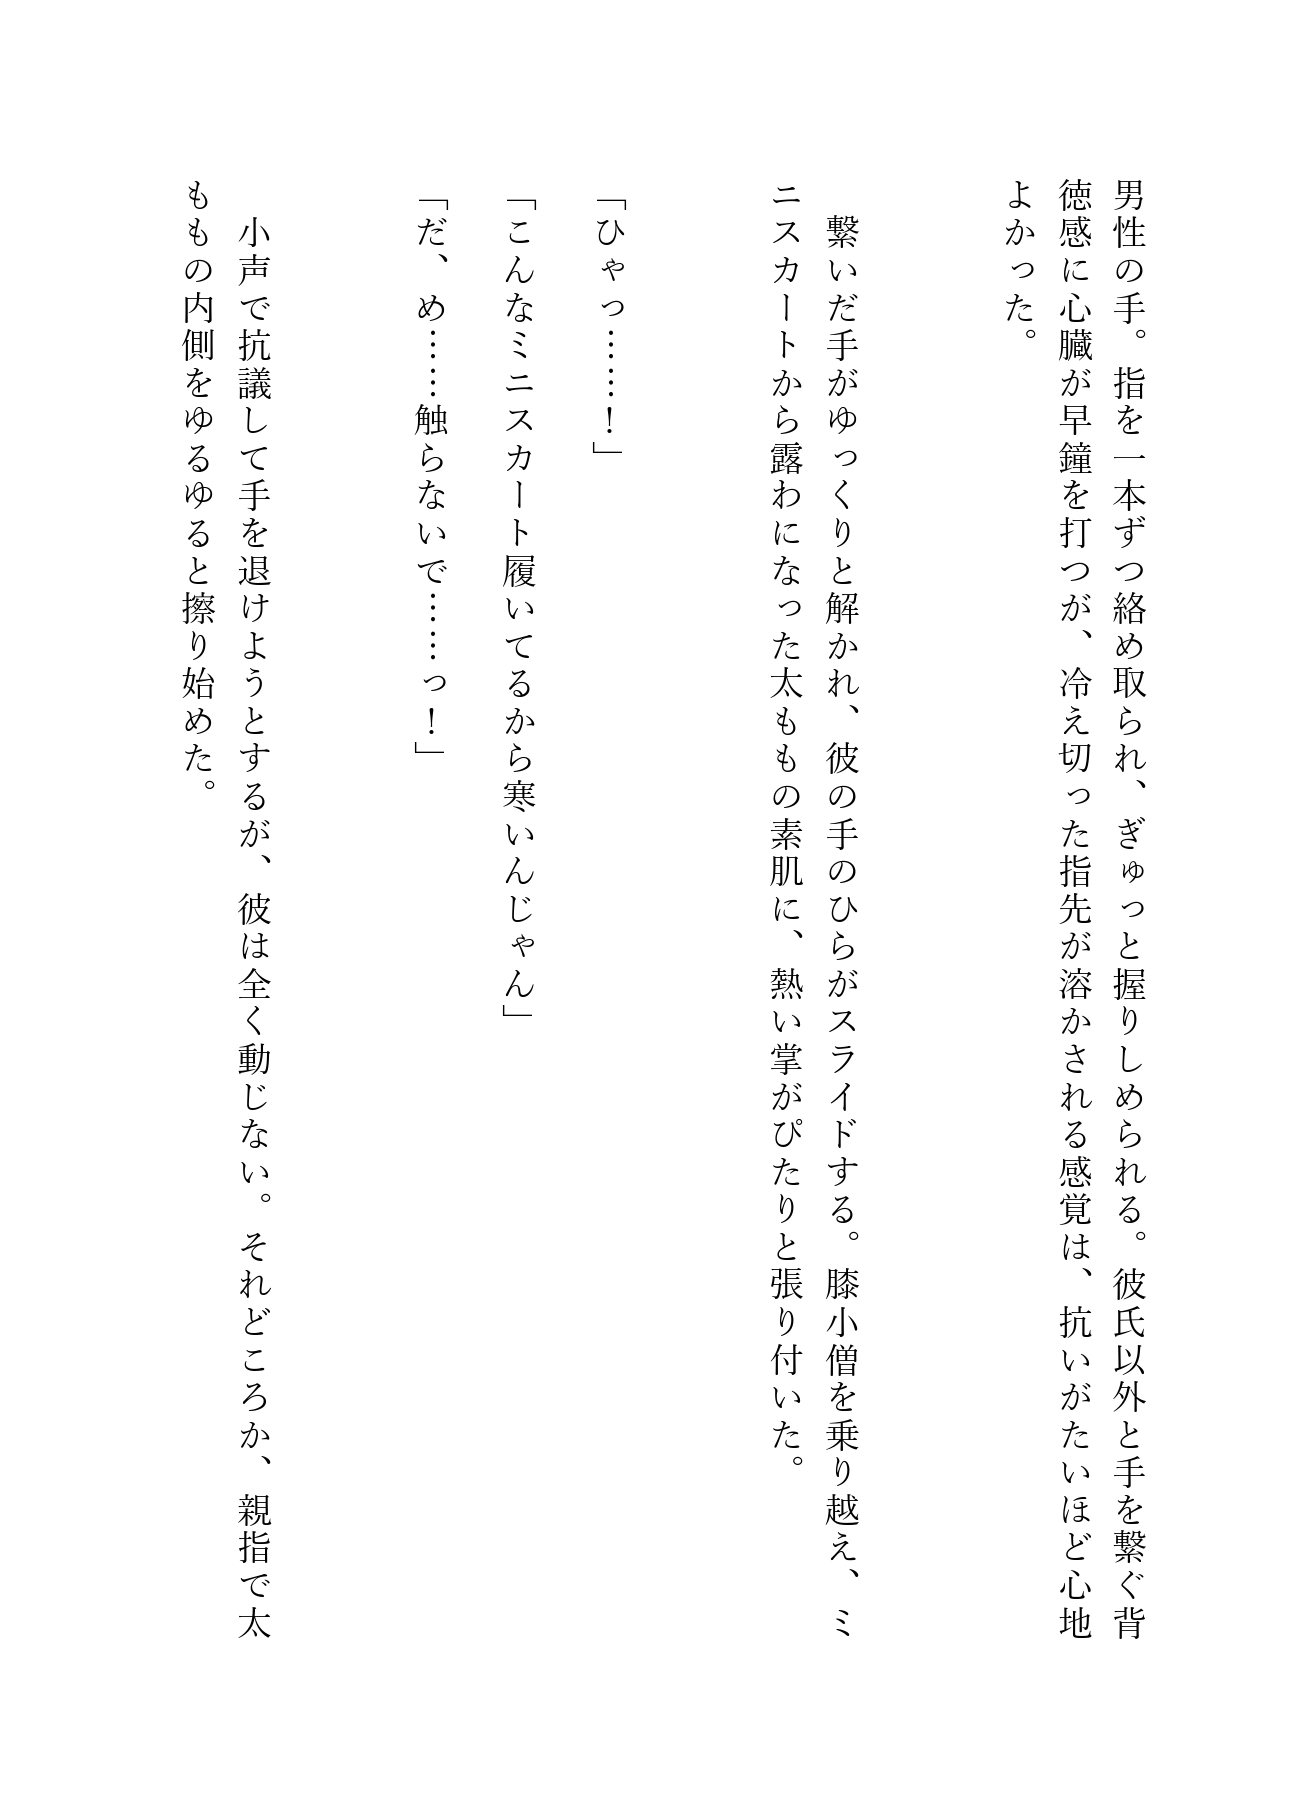 男性の手。指を一本ずつ絡め取られ、ぎゅっと握りしめられる。彼氏以外と手を繋ぐ背
徳感に心臓が早鐘を打つが、冷え切った指先が溶かされる感覚は、抗いがたいほど心地
よかった。
　繋いだ手がゆっくりと解かれ、彼の手のひらがスライドする。膝小僧を乗り越え、ミ
ニスカートから露わになった太ももの素肌に、熱い掌がぴたりと張り付いた。
「ひゃっ……！」
「こんなミニスカート履いてるから寒いんじゃん」
「だ、め……触らないで……っ！」
　小声で抗議して手を退けようとするが、彼は全く動じない。それどころか、親指で太
ももの内側をゆるゆると擦り始めた。